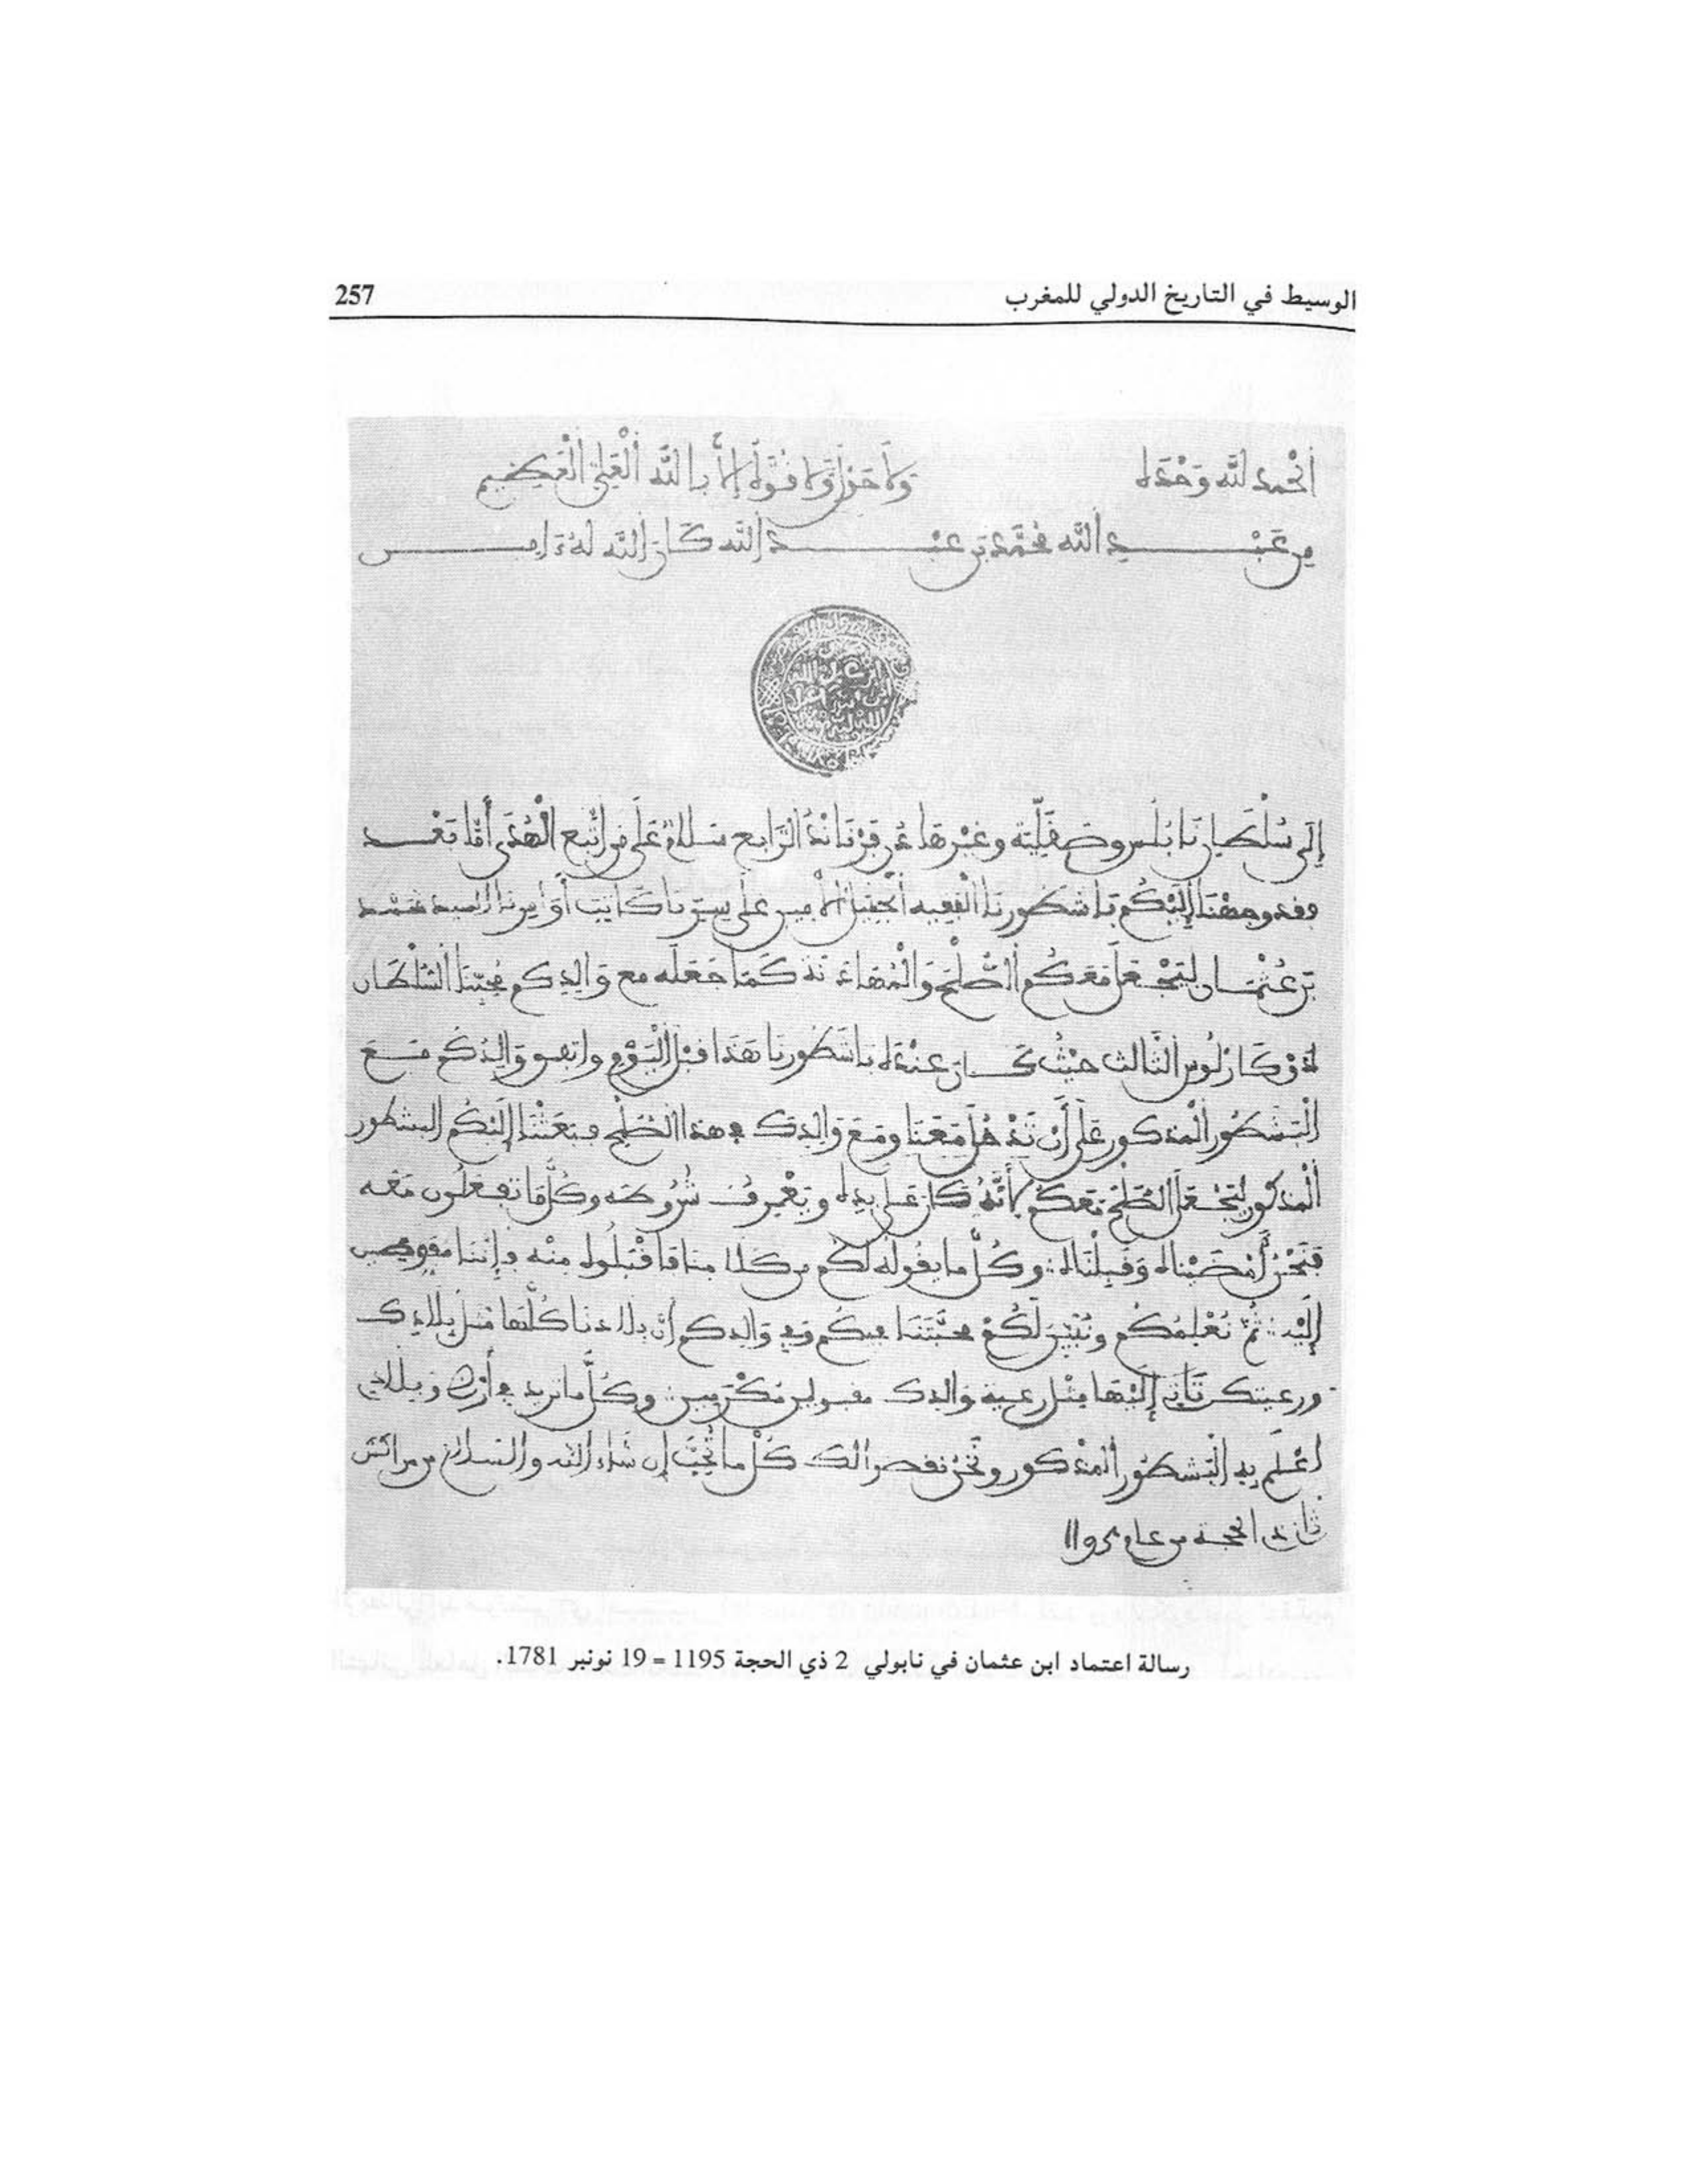 الوسيط في التاريخ الدولي للمغرب 257
اَلْحمد لله وَحْدَه وَلاَ حَوْلَ وَلاَ قُوَّةَ إِلاَّ بِاللَّه اَلْعَلِيِّ الْعَظِيم
مِن عَبْدِ اللَّه مُحَمَّد بْنِ عَبْدِ اللَّه كَانَ اللَّه لَهُ ءَامين
ابن عبد الله
إِلَى سُلْطَانِ نَابُلُس وصقلِّيَة وغَيْرِهَا فَرْنَانْدُ الرَّابِع سَلاَمٌ عَلَى مَن اتَّبَع الْهُدَى أَمَّا بَعْد
فقد وجهْنَا إِلَيْكُم بَاشَطُورنَا الْفقيه اَلأمين علَى سِرِّنَا كَاتِبَ أَوَامِرنا السيد محمد
بن عُثْمَان لِيَجْعَلَ مَعَكُم الصُّلْحَ وَالْمُهَادَنَة كَمَا جَعَلَه مع وَالِدِكم مُحِبّنَا السُّلْطَان
كَارْلُوس الثَّالث حَيْثُ كَان عِنْدَه بَاشَطُورنَا هَذَا قَبْل الْيَوْمِ واتفق وَالِدُكم مَعَ
الْبَشَطُور الْمذكور عَلَى أَنْ تَدْخُلَ مَعَنَا ومَعَ وَالِدِكَ في هذا الصُّلْح فبَعَثْنَا إِلَيْكُم البشطور
اَلْمذكور لِيَجْعَلَ الصُّلْحَ مَعَكُم لأَنَّهُ كَانَ عَلَى يدِه ويَعْرِفُ شُرُوطَه وكُلَّ مَا تفعَلُون مَعَه
فَنَحْنُ أَمْضَيْنَاه وَقَبِلْنَاه وكُلّ ما يقُولُه لَكُم من كَلام منا فَاقْبَلُوه مِنْه فإِننَا مفوضين
إِلَيْه ثُمَّ نُعْلِمُكُم ونُبَيِّنُ لَكُمْ محَبَّتَنَا فيكُم وفي وَالدكم أنّ بلادنا كُلَّهَا مثل بِلادِك
ورعيتك تَأتي إِلَيْهَا مِثْل رعية وَالدك مقبولين مُكْرَمين وكُلّ ما تريد في أرضي وبلادي
اَعْلم به الْبَشطُور الْمذكور ونَحْنُ نقضوا لك كُلّ ما تُحِبّ إن شَاء اللَّه والسلام من مراكش
ثاني الحجة من عام 1195
رسالة اعتماد ابن عثمان في نابولي 2 ذي الحجة 1195 = 19 نونبر 1781.